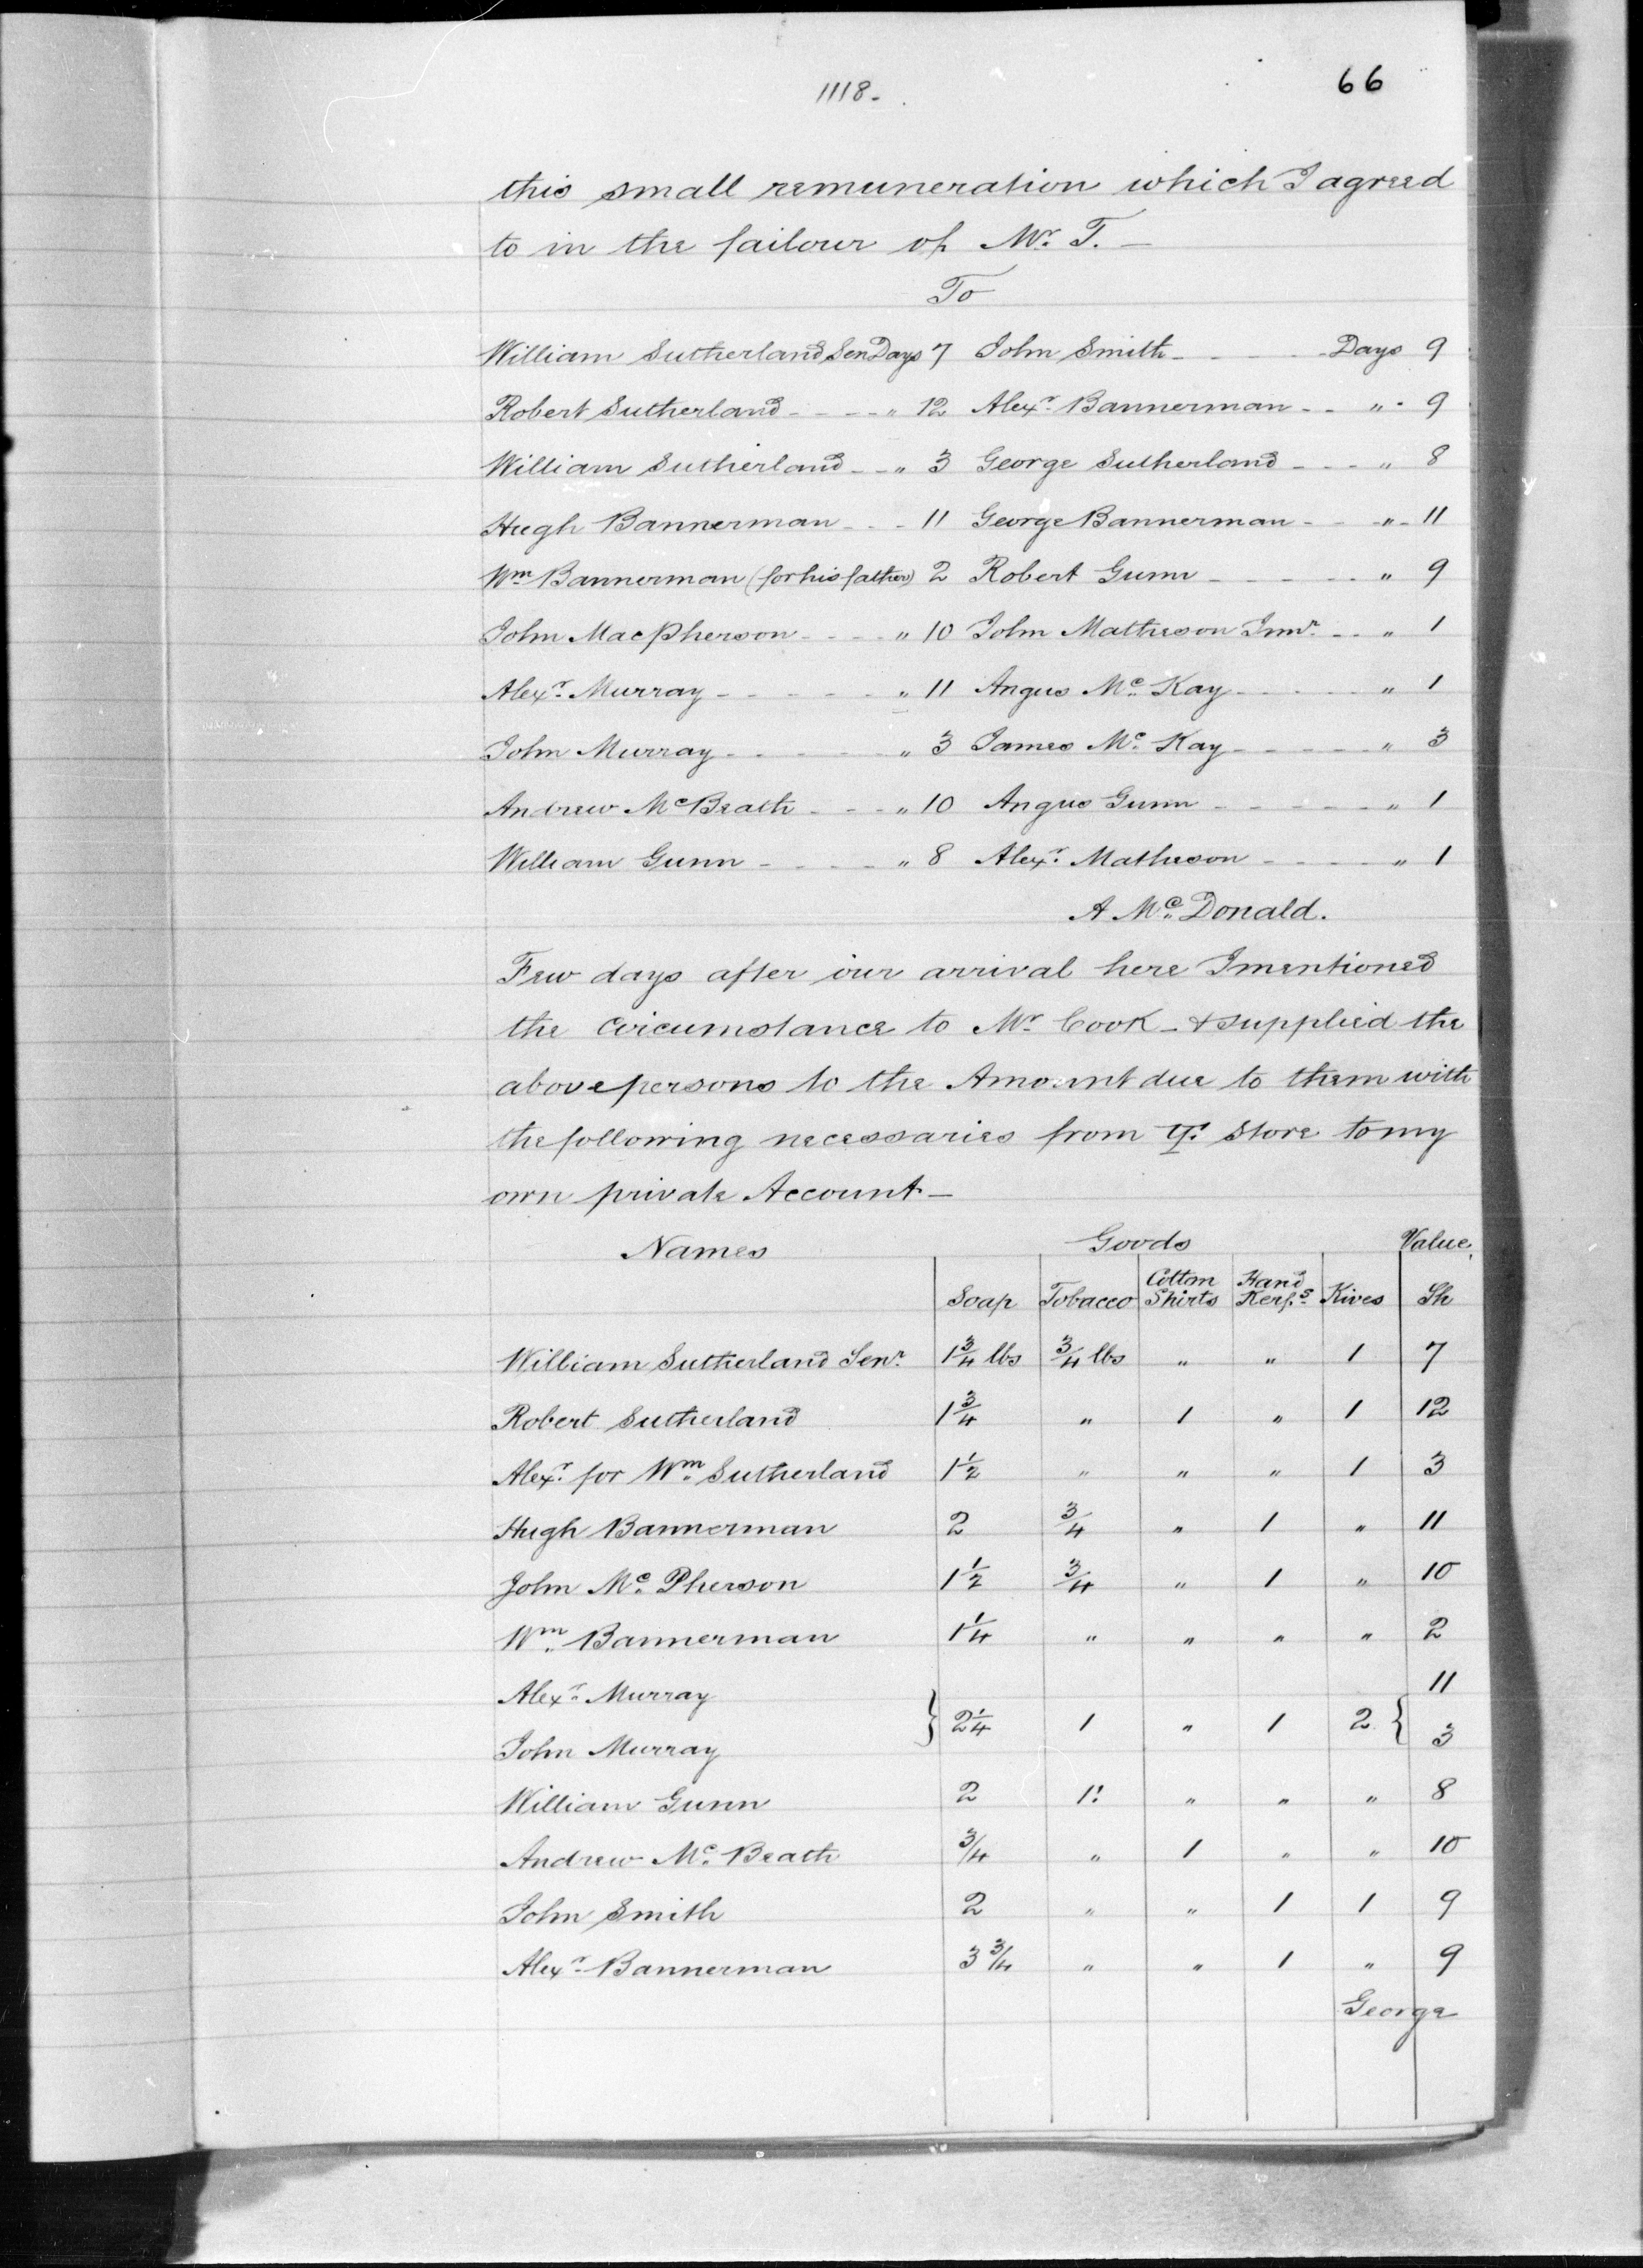 1118.
66
this small remuneration which I agreed
to in the failour of Mr. T. —
To
William Sutherland Sen Days 7 John Smith - - - Days 9
Robert Sutherland - - - - " 12 Alexr. Bannerman - - " 9
William Sutherland - - " 3 George Sutherland - - - " 8
Hugh Bannerman - - - 11 George Bannerman - - " 11
Wm Bannerman (for his father) 2 Robert Gunn - - - - - " 9
John MacPherson - - - - " 10 John Matheson Junr. - - " 1
Alexr. Murray - - - - - - " 11 Angus Mc. Kay - - - - " 1
John Murray - - - - - - " 3 James Mc. Kay - - - - - " 3
Andrew McBeath - - - " 10 Angus Gunn - - - - - - " 1
William Gunn - - - - - " 8 Alexr. Matheson - - - - - " 1
A Mc. Donald.
Few days after our arrival here I mentioned
the circumstance to Mr Cook - & supplied the
above persons to the Amount due to them with
the following necessaries from Store to my
own private Account —
Names Goods Value.
Soap Tobacco Cotton Shirts Hand Kerfs. Kives Sh
William Sutherland Senr. 1¾ lbs ¾ lbs " " 1 7
Robert Sutherland 1¾ " 1 " 1 12
Alexr. for Wm Sutherland 1½ " " " 1 3
Hugh Bannerman 2 ¾ " 1 " 11
John Mc. Pherson 1½ ¾ " 1 " 10
Wm. Bannerman 1¼ " " " " 2
Alexr. Murray 11
} 2¼ 1 " 1 2 {
John Murray 3
William Gunn 2 1! " " " 8
Andrew Mc. Beath ¾ " 1 " " 10
John Smith 2 " " 1 1 9
Alexr. Bannerman 3¾ " " 1 " 9
George